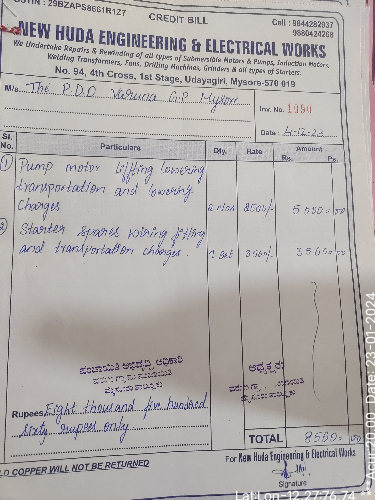 GSTIN : 29BZAPS8661R1Z7
CREDIT BILL
Call : 9844282037
9880424208
NEW HUDA ENGINEERING & ELECTRICAL WORKS
We Undertake Repairs & Rewinding of all types of Submersible Motors & Pumps, Induction Motors,
Welding Transformers, Fans, Drilling Machines, Grinders & all types of Starters.
No. 94, 4th Cross, 1st Stage, Udayagiri, Mysore-570 019
M/s The P.D.O Varuna G.P Mysore
Inv. No. 1090
Date : 4-12-23
Sl. No. Particulars Qty. Rate Amount
Rs. Ps.
1 Pump motor lifting lowering
transportation and lowering
charges
2 Starter spares wiring fitting
and transportation charges.
ಪಂಚಾಯಿತಿ ಅಭಿವೃದ್ಧಿ ಅಧಿಕಾರಿ
ಅಧ್ಯಕ್ಷರು
Rupees Eight thousand five hundred
sixty rupees only
TOTAL
LD COPPER WILL NOT BE RETURNED
For New Huda Engineering & Electrical Works
Signature
Date: 23-01-2024